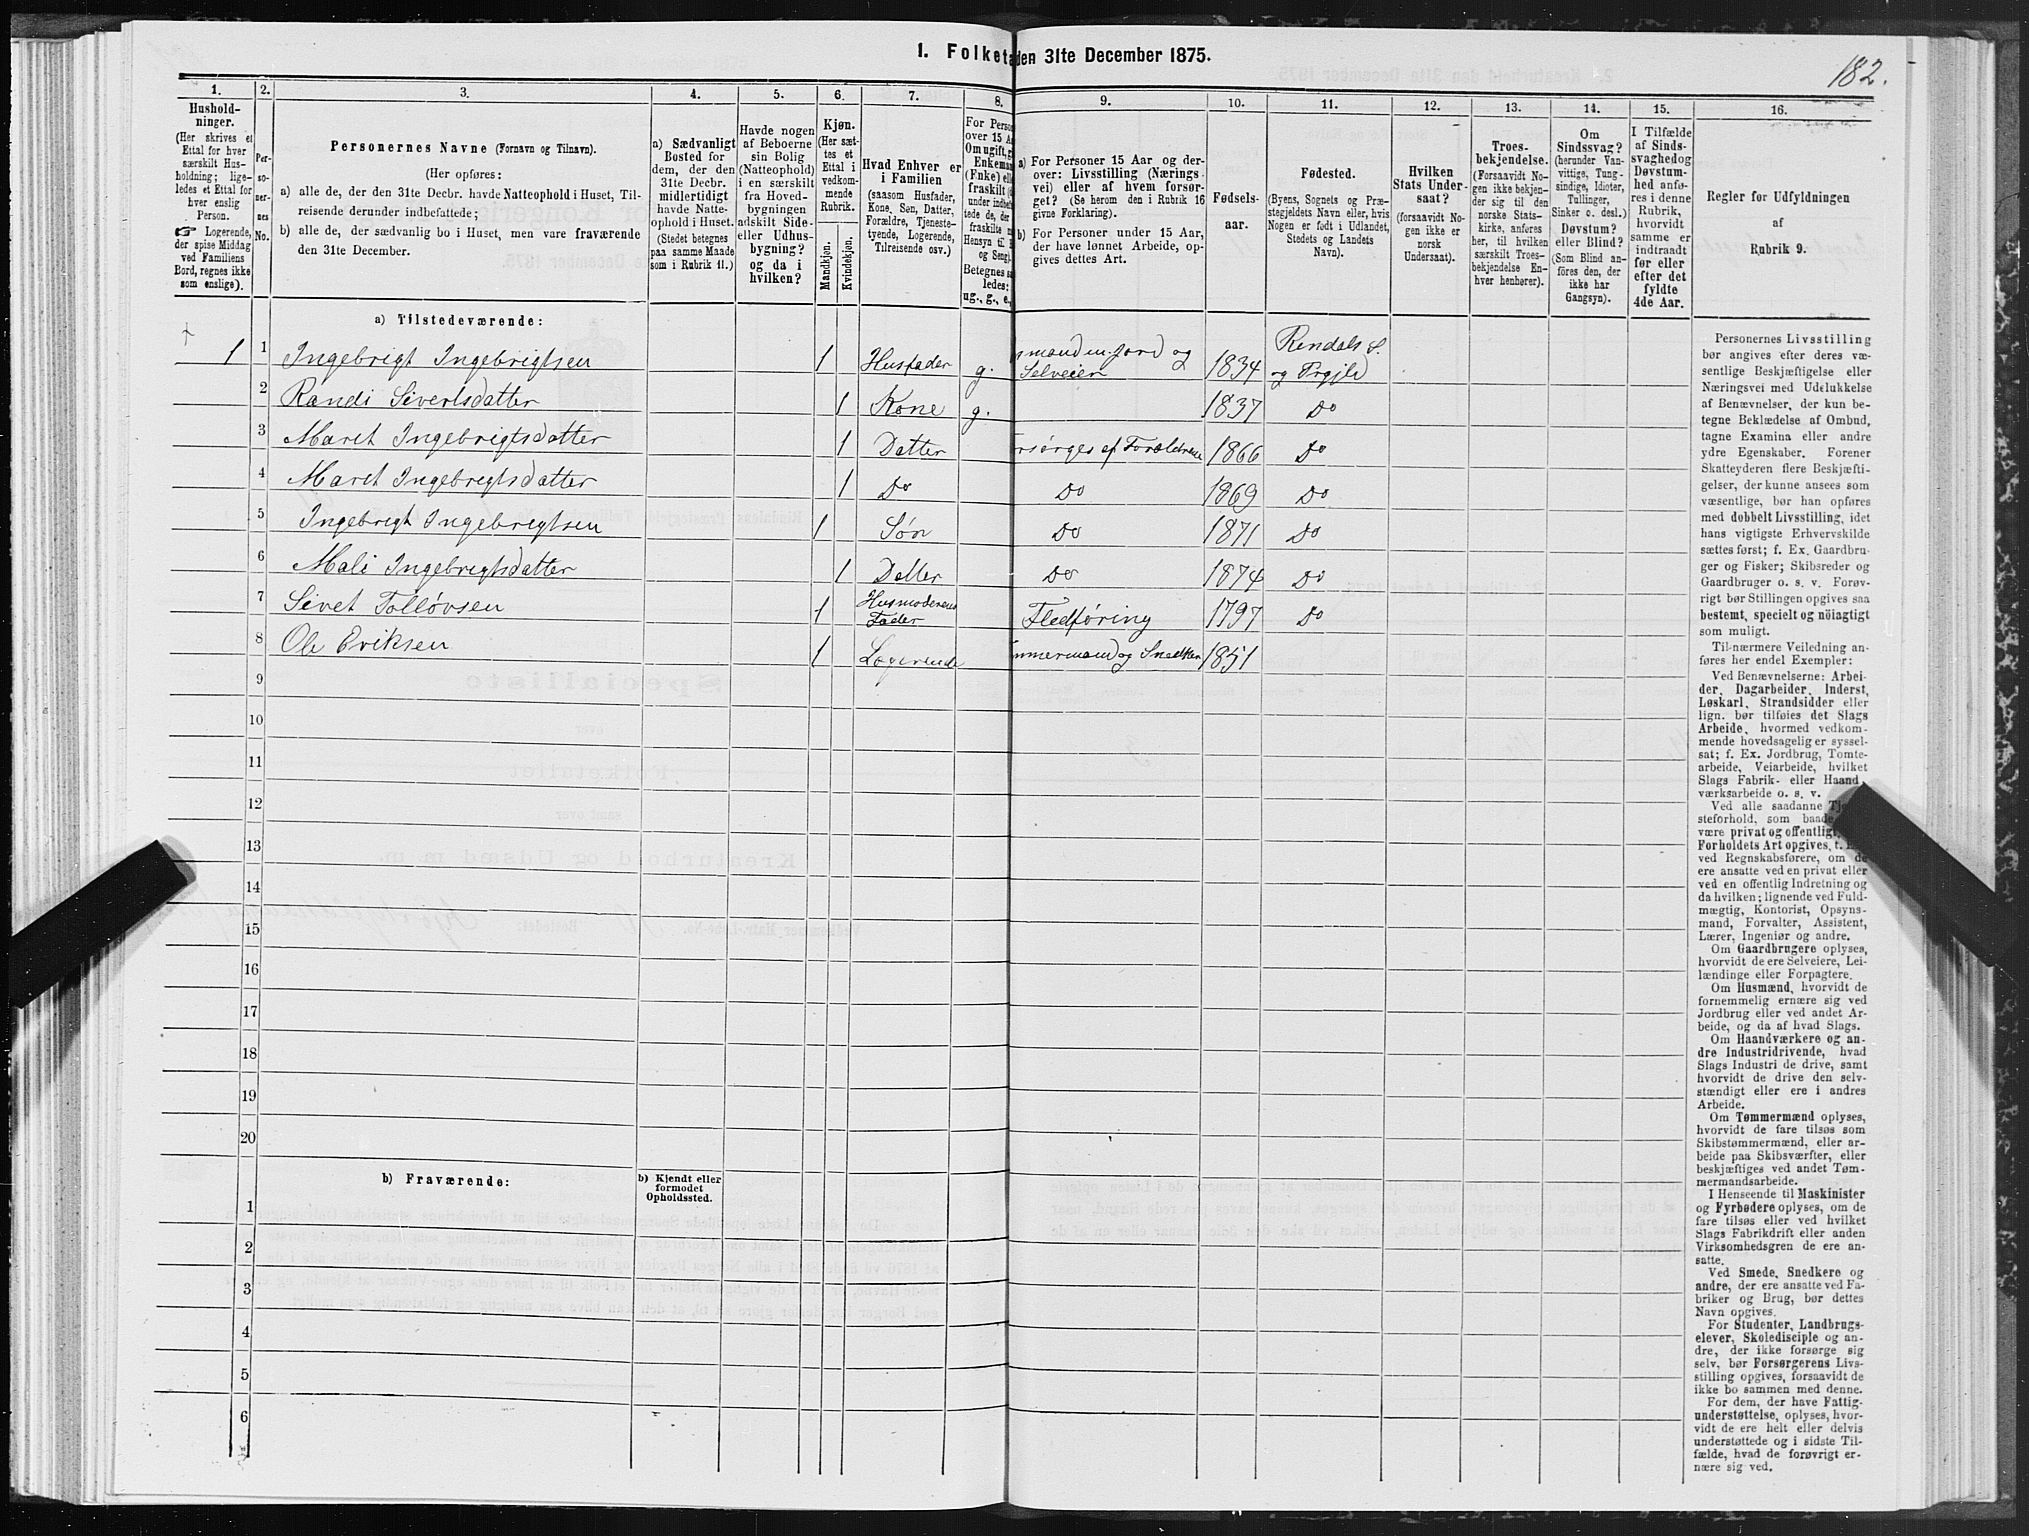 1. Folketa den 31te December 1875.
182.
1. 2. 3. 4. 5. 6. 7. 8. 9. 10. 11. 12. 13. 14. 15. 16.
Hushold-
ninger.
(Her skrives et
Ettal for hver
særskilt Hus-
holdning; lige-
ledes et Ettal for
hver enslig
Person.
☞ Logerende,
der spise Middag
ved Familiens
Bord, regnes ikke
som enslige).
Per-
so-
ner-
nes
No.
Personernes Navne (Fornavn og Tilnavn).
(Her opføres:
a) alle de, der den 31te Decbr. havde Natteophold i Huset, Til-
reisende derunder indbefattede;
b) alle de, der sædvanlig bo i Huset, men vare fraværende
den 31te December.
a) Sædvanligt
Bosted for
dem, der den
31te Decbr.
midlertidigt
havde Natte-
ophold i Huset.
(Stedet betegnes
paa samme Maade
som i Rubrik 11.)
Havde nogen
af Beboerne
sin Bolig
(Natteophold)
i en særskilt
fra Hoved-
bygningen
adskilt Side-
eller Udhus-
bygning?
og da i
hvilken?
Kjøn.
(Her sæt-
tes et
Ettal i
vedkom-
mende
Rubrik.
Mandkjøn.
Kvindekjøn.
Hvad Enhver er
i Familien
(saasom Husfader,
Kone, Søn, Datter,
Forældre, Tjeneste-
tyende, Logerende,
Tilreisende osv.)
For Person
over 15 Aa
Om ugift, g
Enkeman
(Enke) ell
fraskilt (
under indbef
tede de, der
fraskilte
Hensyn til B
og Seng).
Betegnes sa
ledes:
ug., g., e.,
a) For Personer 15 Aar og der-
over: Livsstilling (Nærings-
vei) eller af hvem forsør-
get? (Se herom den i Rubrik 16
givne Forklaring).
b) For Personer under 15 Aar,
der have lønnet Arbeide, op-
gives dettes Art.
Fødsels-
aar.
Fødested.
(Byens, Sognets og Præ-
stegjeldets Navn eller, hvis
Nogen er født i Udlandet,
Stedets og Landets
Navn).
Hvilken
Stats Under-
saat?
(forsaavidt No-
gen ikke er
norsk
Undersaat).
Troes-
bekjendelse.
(Forsaavidt No-
gen ikke bekjen-
der sig til den
norske Stats-
kirke, anføres
her, til hvilken
særskilt Troes-
bekjendelse En-
hver henhører).
Om
Sindssvag?
(herunder Van-
vittige, Tung-
sindige, Idioter,
Tullinger,
Sinker o. desl.)
Døvstum?
eller Blind?
(Som Blind an-
føres den, der
ikke har
Gangsyn).
I Tilfælde
af Sinds-
svaghed og
Døvstum-
hed anfø-
res i denne
Rubrik,
hvorvidt
samme er
indtraadt
før eller
efter det
fyldte
4de Aar.
Regler for Udfyldningen
af
Rubrik 9.
a) Tilstedeværende:
1 1 Ingebrigt Ingebrigtsen 1 Husfader g. smand m. Jord og Selveier 1834 Rindals S. og Prgjld
2 Randi Sivertsdatter 1 Kone g. 1837 Do
3 Maret Ingebrigtsdatter 1 Datter rsørges af Forældrene 1866 Do
4 Maret Ingebrigtsdatter 1 Do Do 1869 Do
5 Ingebrigt Ingebrigtsen 1 Søn Do 1871 Do
6 Mali Ingebrigtsdatter 1 Datter Do 1874 Do
7 Sivet Tolløvsen 1 Husmoderens Fader Fledføring 1797 Do
8 Ole Eriksen 1 Logerende mmermand og Snedker 1851
9
10
11
12
13
14
15
16
17
18
19
20
b) Fraværende:
b) Kjendt eller
formodet
Opholdssted.
1
2
3
4
5
6
Personernes Livsstilling
bør angives efter deres væ-
sentlige Beskjæftigelse eller
Næringsvei med Udelukkelse
af Benævnelser, der kun be-
tegne Beklædelse af Ombud,
tagne Examina eller andre
ydre Egenskaber. Forener
Skatteyderen flere Beskjæfti-
gelser, der kunne ansees som
væsentlige, bør han opføres
med dobbelt Livsstilling, idet
hans vigtigste Erhvervskilde
sættes først; f. Ex. Gaardbru-
ger og Fisker; Skibsreder og
Gaardbruger o. s. v. Forøv-
rigt bør Stillingen opgives saa
bestemt, specielt og nöiagtigt
som muligt.
Til nærmere Veiledning an-
føres her endel Exempler:
Ved Benævnelserne: Arbei-
der, Dagarbeider, Inderst,
Løskarl, Strandsidder eller
lign. bør tilføies det Slags
Arbeide, hvormed vedkom-
mende hovedsagelig er syssel-
sat; f. Ex. Jordbrug, Tomte-
arbeide, Veiarbeide, hvilket
Slags Fabrik- eller Haand
værksarbeide o. s. v.
Ved alle saadanne Tje
steforhold, som baade
være privat og offentligt,
Forholdets Art opgives, t. E
ved Regnskabsførere, om de
ere ansatte ved en privat eller
ved en offentlig Indretning og
da hvilken; lignende ved Fuld-
mægtig, Kontorist, Opsyns-
mand, Forvalter, Assistent,
Lærer, Ingeniør og andre.
Om Gaardbrugere oplyses,
hvorvidt de ere Selveiere, Lei-
lændinge eller Forpagtere.
Om Husmænd, hvorvidt de
fornemmelig ernære sig ved
Jordbrug eller ved andet Ar-
beide, og da af hvad Slags.
Om Haandværkere og an-
dre Industridrivende, hvad
Slags Industri de drive, samt
hvorvidt de drive den selv-
stændigt eller ere i andres
Arbeide.
Om Tømmermænd oplyses,
hvorvidt de fare tilsøs som
Skibstømmermænd, eller ar-
beide paa Skibsværfter, eller
beskjæftiges ved andet Tøm-
mermandsarbeide.
I Henseende til Maskinister
og Fyrbødere oplyses, om de
fare tilsøs eller ved hvilket
Slags Fabrikdrift eller anden
Virksomhedsgren de ere an-
satte.
Ved Smede, Snedkere og
andre, der ere ansatte ved Fa-
briker og Brug, bør dettes
Navn opgives.
For Studenter, Landbrugs-
elever, Skoledisciple og an-
dre, der ikke forsørge sig
selv, bør Forsørgerens Livs-
stilling opgives, forsaavidt de
ikke bo sammen med denne.
For dem, der have Fattig-
understøttelse, oplyses, hvor-
vidt de ere helt eller delvis
understøttede og i sidste Til-
fælde, hvad de forøvrigt er-
nære sig ved.